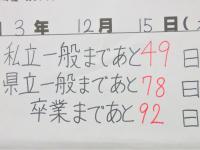 3年 12月 15日(
私立一般まであと49日
県立一般まであと78日
卒業まであと92日